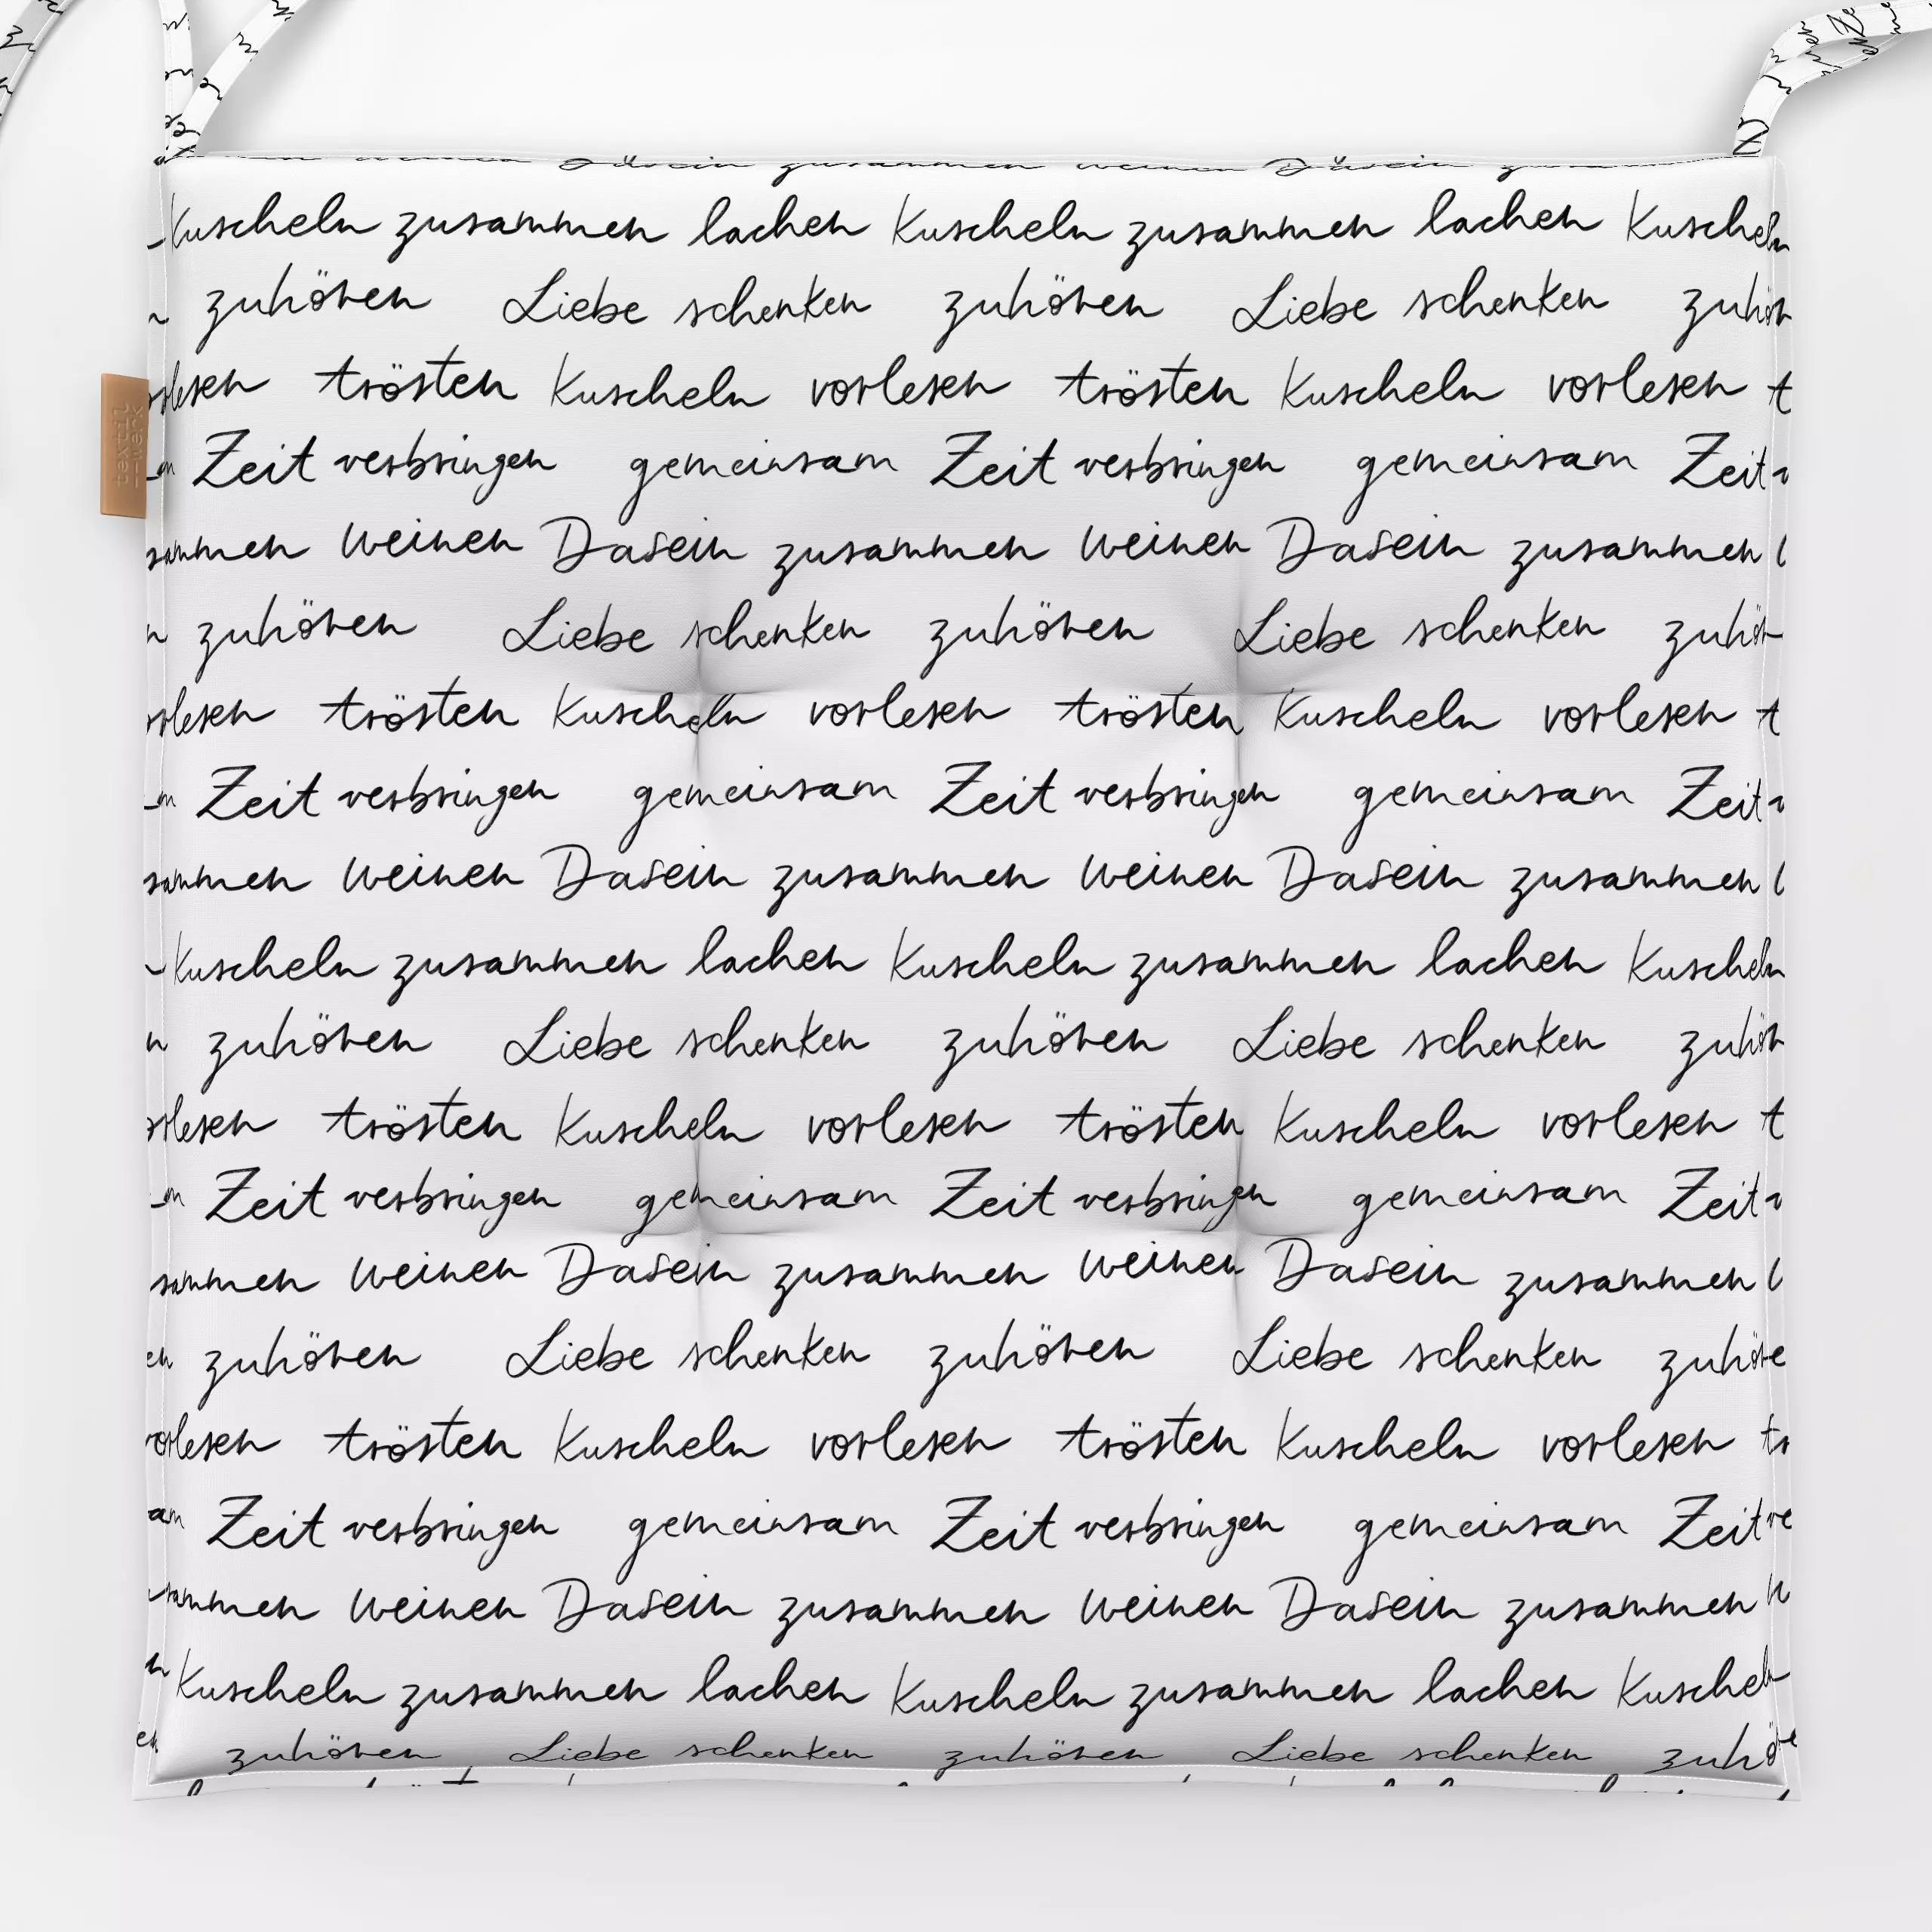 weinen Dasein zusammen weinen Dasein
Kuscheln zusammen lachen Kuscheln zusammen lachen Kuscheln
zuhören Liebe schenken zuhören Liebe schenken zuhör
rlesen trösten Kuscheln vorlesen trösten Kuscheln vorlesen t
Zeit verbringen gemeinsam Zeit verbringen gemeinsam Zeit v
textil
werk
sammen weinen Dasein zusammen weinen Dasein zusammen
zuhören Liebe schenken zuhören Liebe schenken zuhör
orlesen trösten Kuscheln vorlesen trösten Kuscheln vorlesen t
Zeit verbringen gemeinsam Zeit verbringen gemeinsam Zeit v
sammen weinen Dasein zusammen weinen Dasein zusammen
Kuscheln zusammen lachen Kuscheln zusammen lachen Kuscheln
n zuhören Liebe schenken zuhören Liebe schenken zuhör
orlesen trösten Kuscheln vorlesen trösten Kuscheln vorlesen t
Zeit verbringen gemeinsam Zeit verbringen gemeinsam Zeit v
sammen weinen Dasein zusammen weinen Dasein zusammen
en zuhören Liebe schenken zuhören Liebe schenken zuhöre
vorlesen trösten Kuscheln vorlesen trösten Kuscheln vorlesen tr
am Zeit verbringen gemeinsam Zeit verbringen gemeinsam Zeit ve
sammen weinen Dasein zusammen weinen Dasein zusammen
n Kuscheln zusammen lachen Kuscheln zusammen lachen Kuschel
en zuhören Liebe schenken zuhören Liebe schenken zuhöre